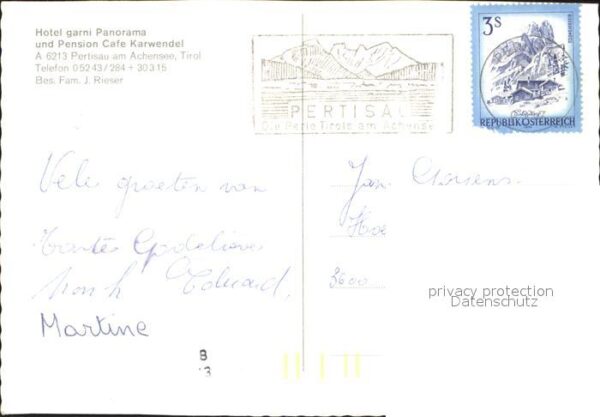 Hotel garni Panorama
und Pension Cafe Karwendel
A 6213 Pertisau am Achensee, Tirol
Telefon 05243/284 + 30315
Bes. Fam. J. Rieser
PERTISAU
Die Perle Tirols am Achensee
3S
REPUBLIK ÖSTERREICH
Vele groeten van
Tante Godelieve
Edward,
Martine
Jan
3600
privacy protection
Datenschutz
B
13